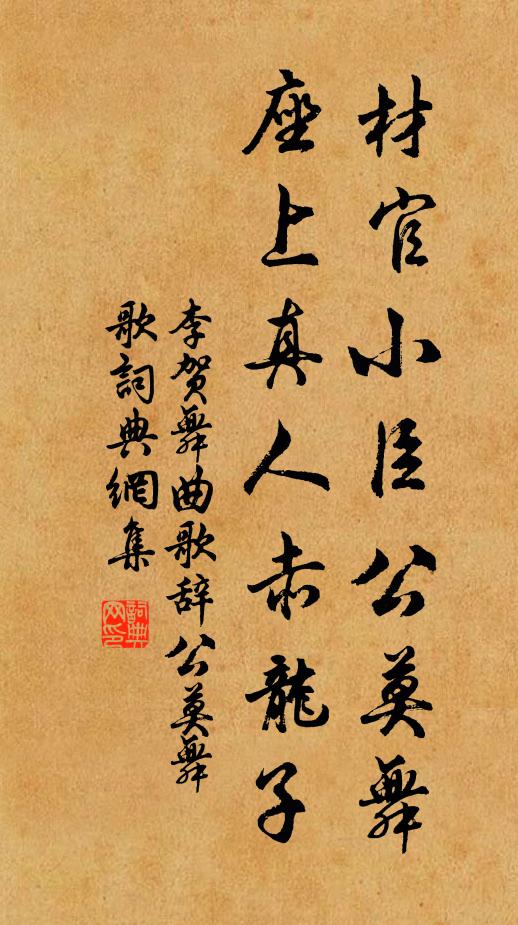 材官小臣公莫舞
座上真人赤龍子
李賀舞曲歌辞公莫舞
歌詞典網集
詞典网印